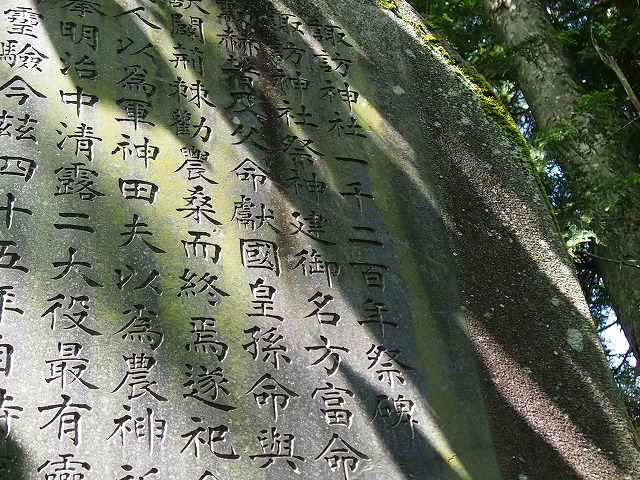 諏訪神社一千二百年祭碑
諏訪神社祭神建御名方富命
赫者父命獻國皇孫命與
闢荊棘勸農桑而終焉遂祀
人以爲軍神田夫以爲農神
擧明治中清露二大役最有靈
靈驗今茲四十五年自